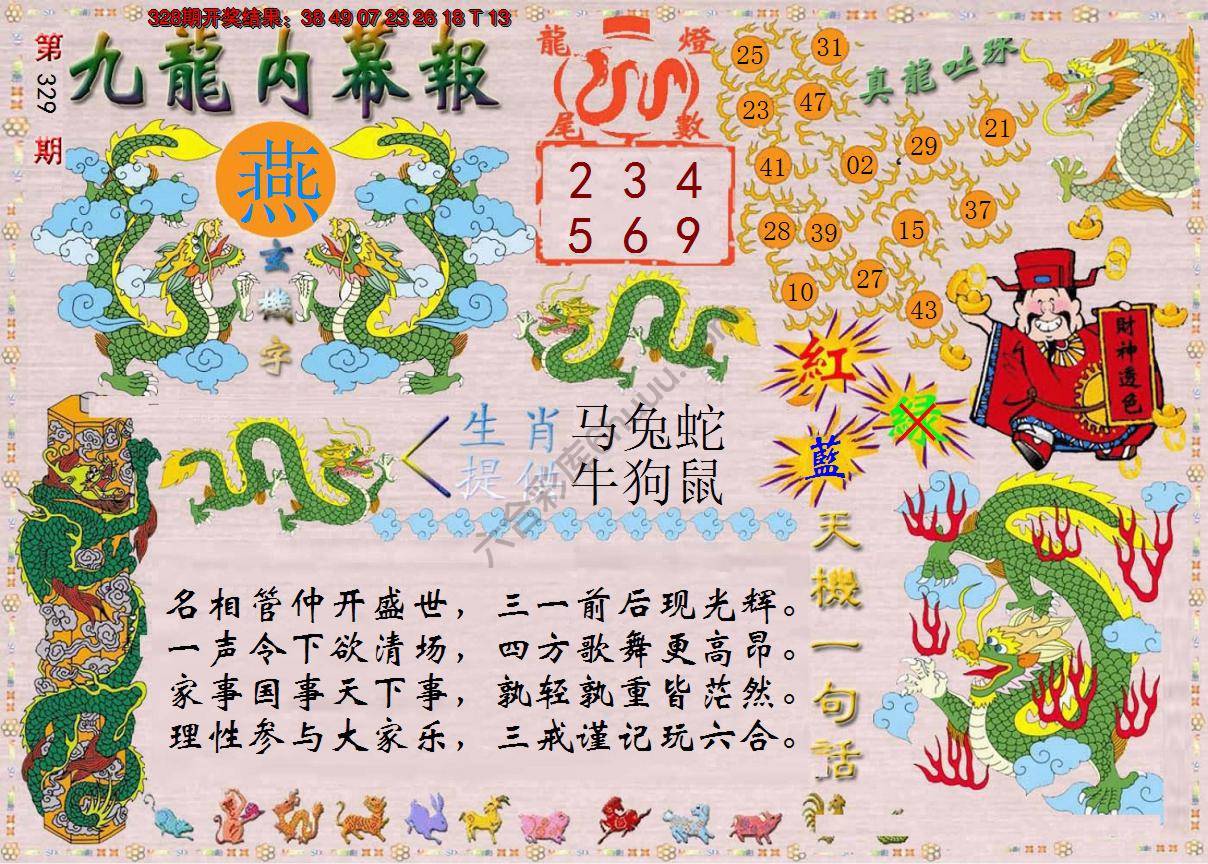 328期开奖结果：38 49 07 23 26 18 T 13
第329期
九龍内幕報
燕
玄機字
龍燈
尾數
2 3 4
5 6 9
真龍吐珠
25 31
23 47
41 02 29 21
28 39 15 37
10 27 43
財神透色
紅
綠
藍
生肖 马兔蛇
提供 牛狗鼠
天機一句話
名相管仲开盛世，三一前后现光辉。
一声令下欲清场，四方歌舞更高昂。
家事国事天下事，孰轻孰重皆茫然。
理性参与大家乐，三戒谨记玩六合。